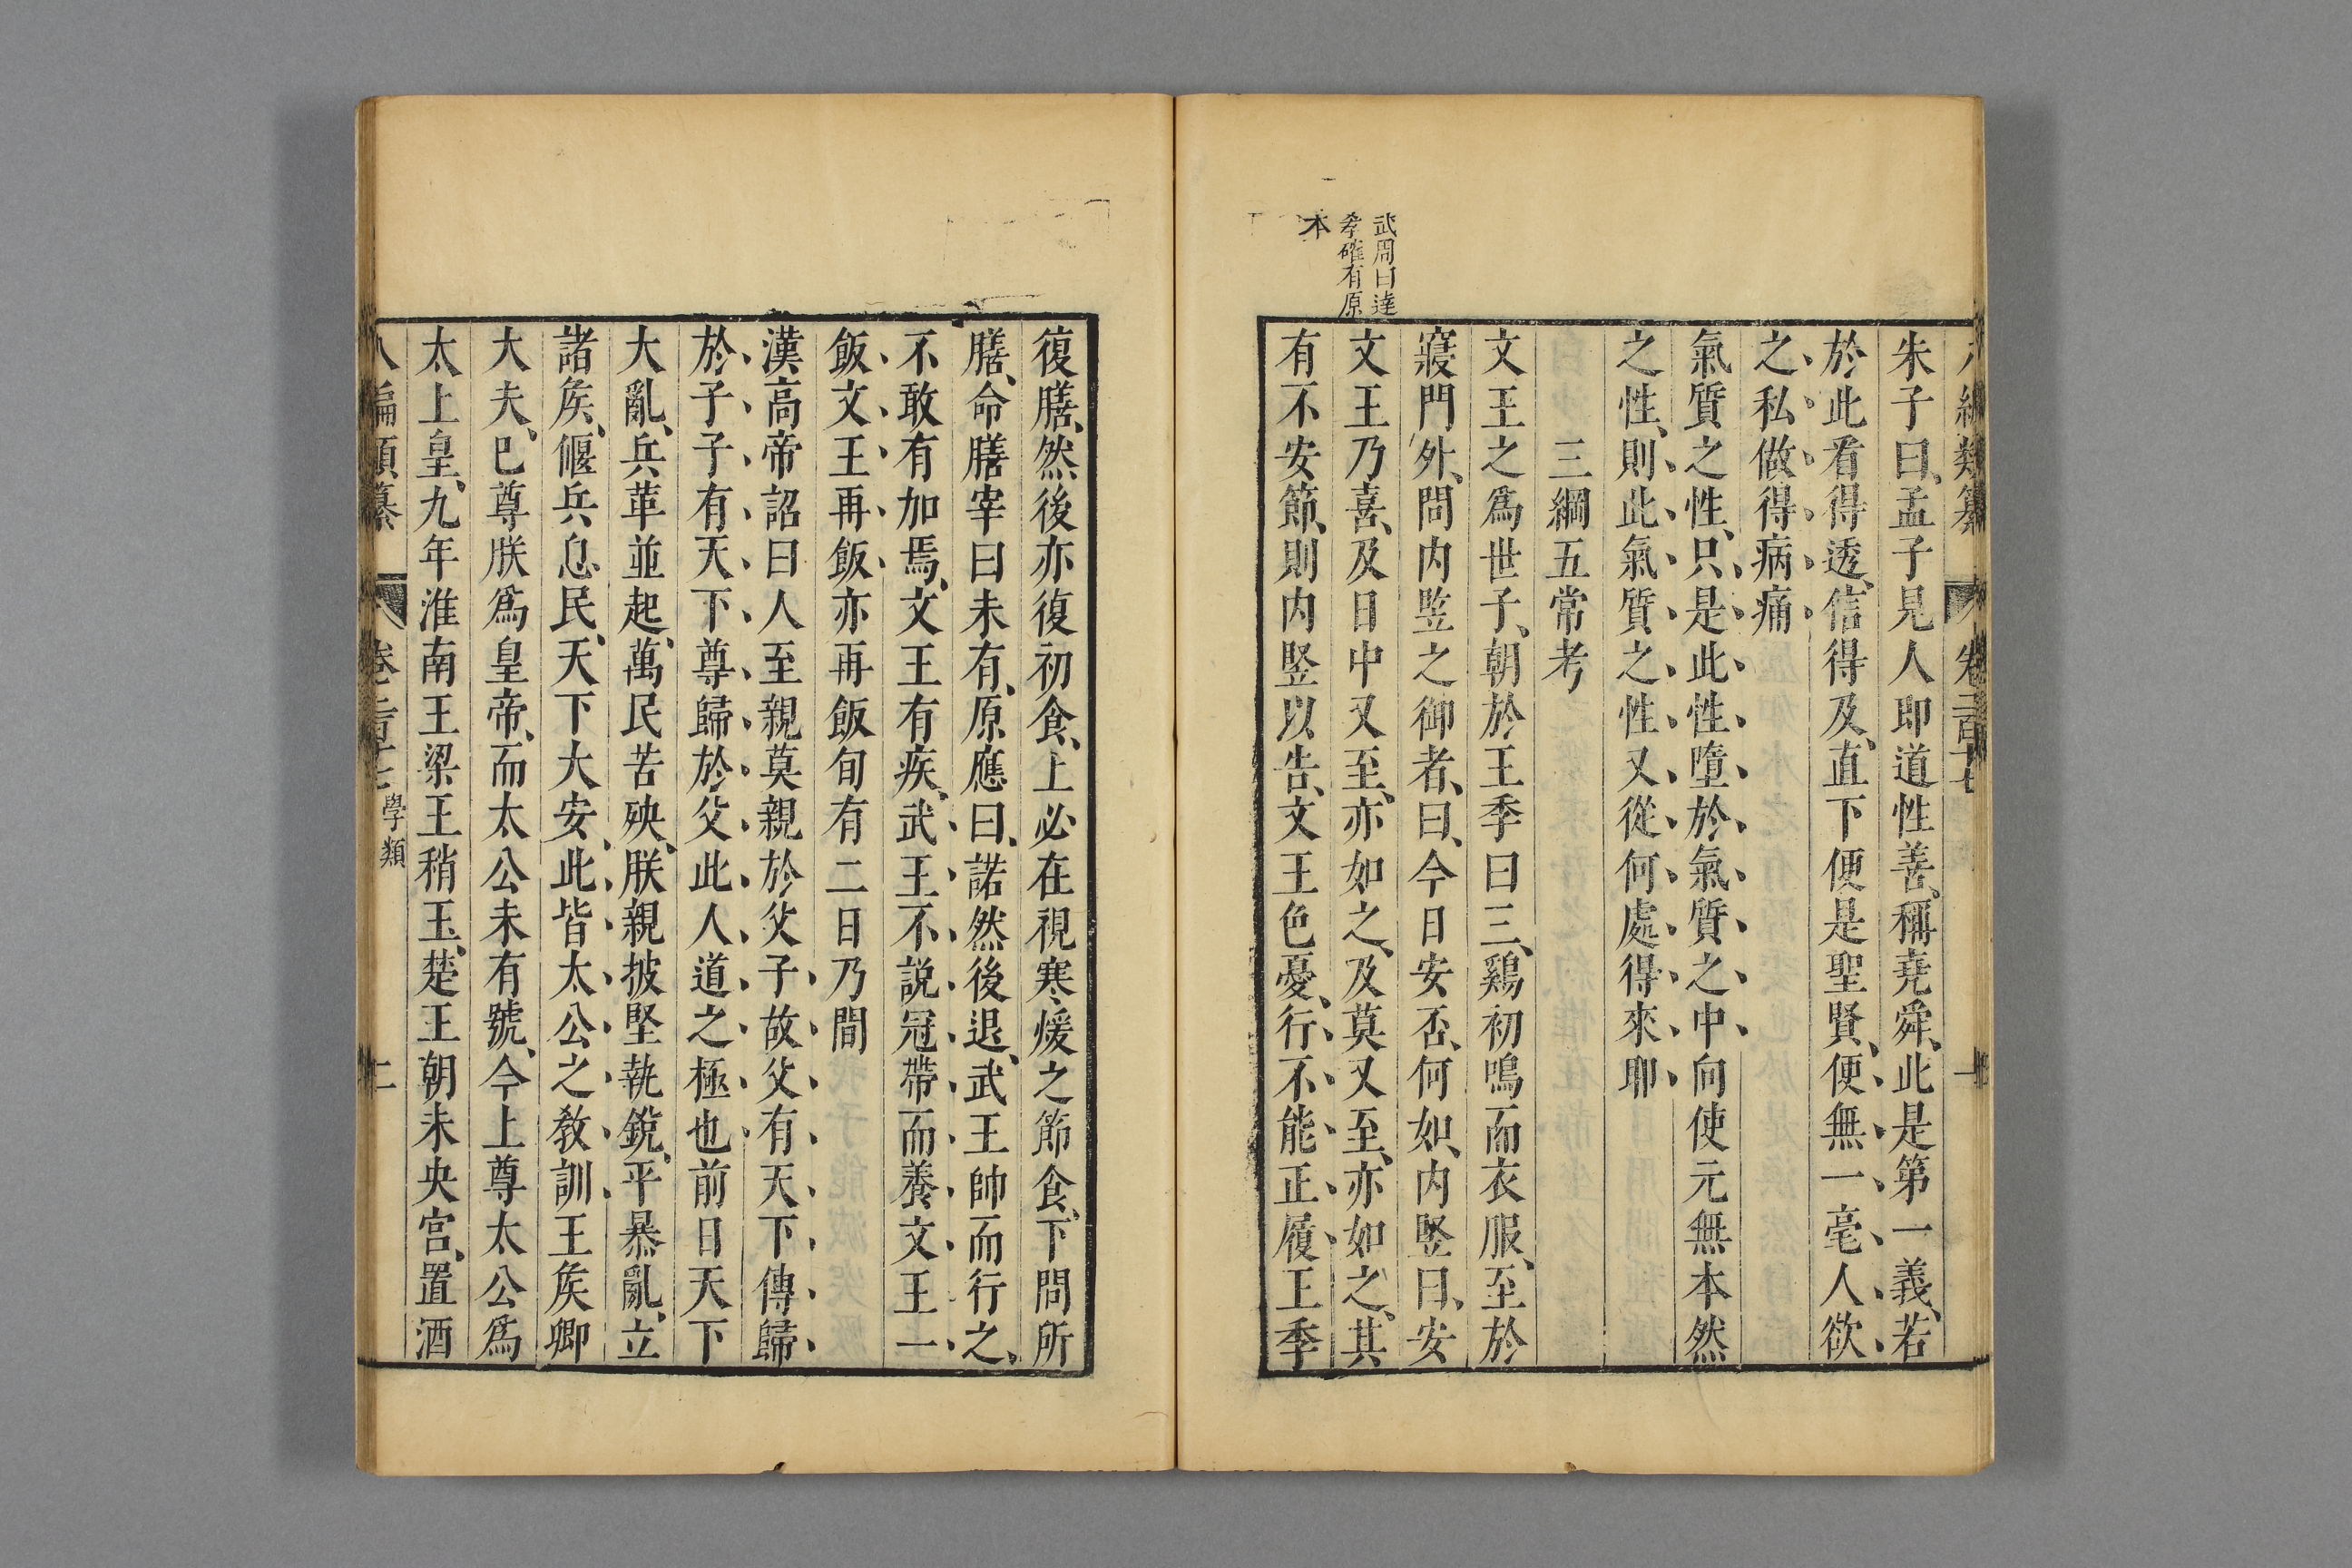 朱子曰、孟子見人即道性善、稱堯舜、此是第一義、若
於此看得透、信得及、直下便是聖賢、便無一毫人欲
之私做得病痛
氣質之性、只是此性墮於氣質之中向使元無本然
之性、則此氣質之性又從何處得來耶
三綱五常考
文王之爲世子、朝於王季日三、鷄初鳴而衣服、至於
寢門外、問内竪之御者、曰、今日安否、何如、内竪曰、安
文王乃喜、及日中又至、亦如之、及莫又至、亦如之、其
有不安節、則内竪以告、文王色憂、行不能正履王季
武周曰達
孝確有原
本
復膳、然後亦復初食、上必在視寒煖之節食、下問所
膳、命膳宰曰未有、原應曰、諾然後退、武王帥而行之、
不敢有加焉、文王有疾、武王不説冠帶而養文王一
飯文王再飯亦再飯旬有二日乃間
漢高帝詔曰人至親莫親於父子故父有天下傳歸
於子子有天下尊歸於父此人道之極也前日天下
大亂、兵革並起、萬民苦殃、朕親披堅執銳、平暴亂、立
諸侯、偃兵息民、天下大安、此皆太公之教訓王侯卿
大夫、巳尊朕爲皇帝、而太公未有號、今上尊太公爲
太上皇、九年淮南王梁王稍王、楚王朝未央宮、置酒
八編類纂 卷二百十七 學類 二